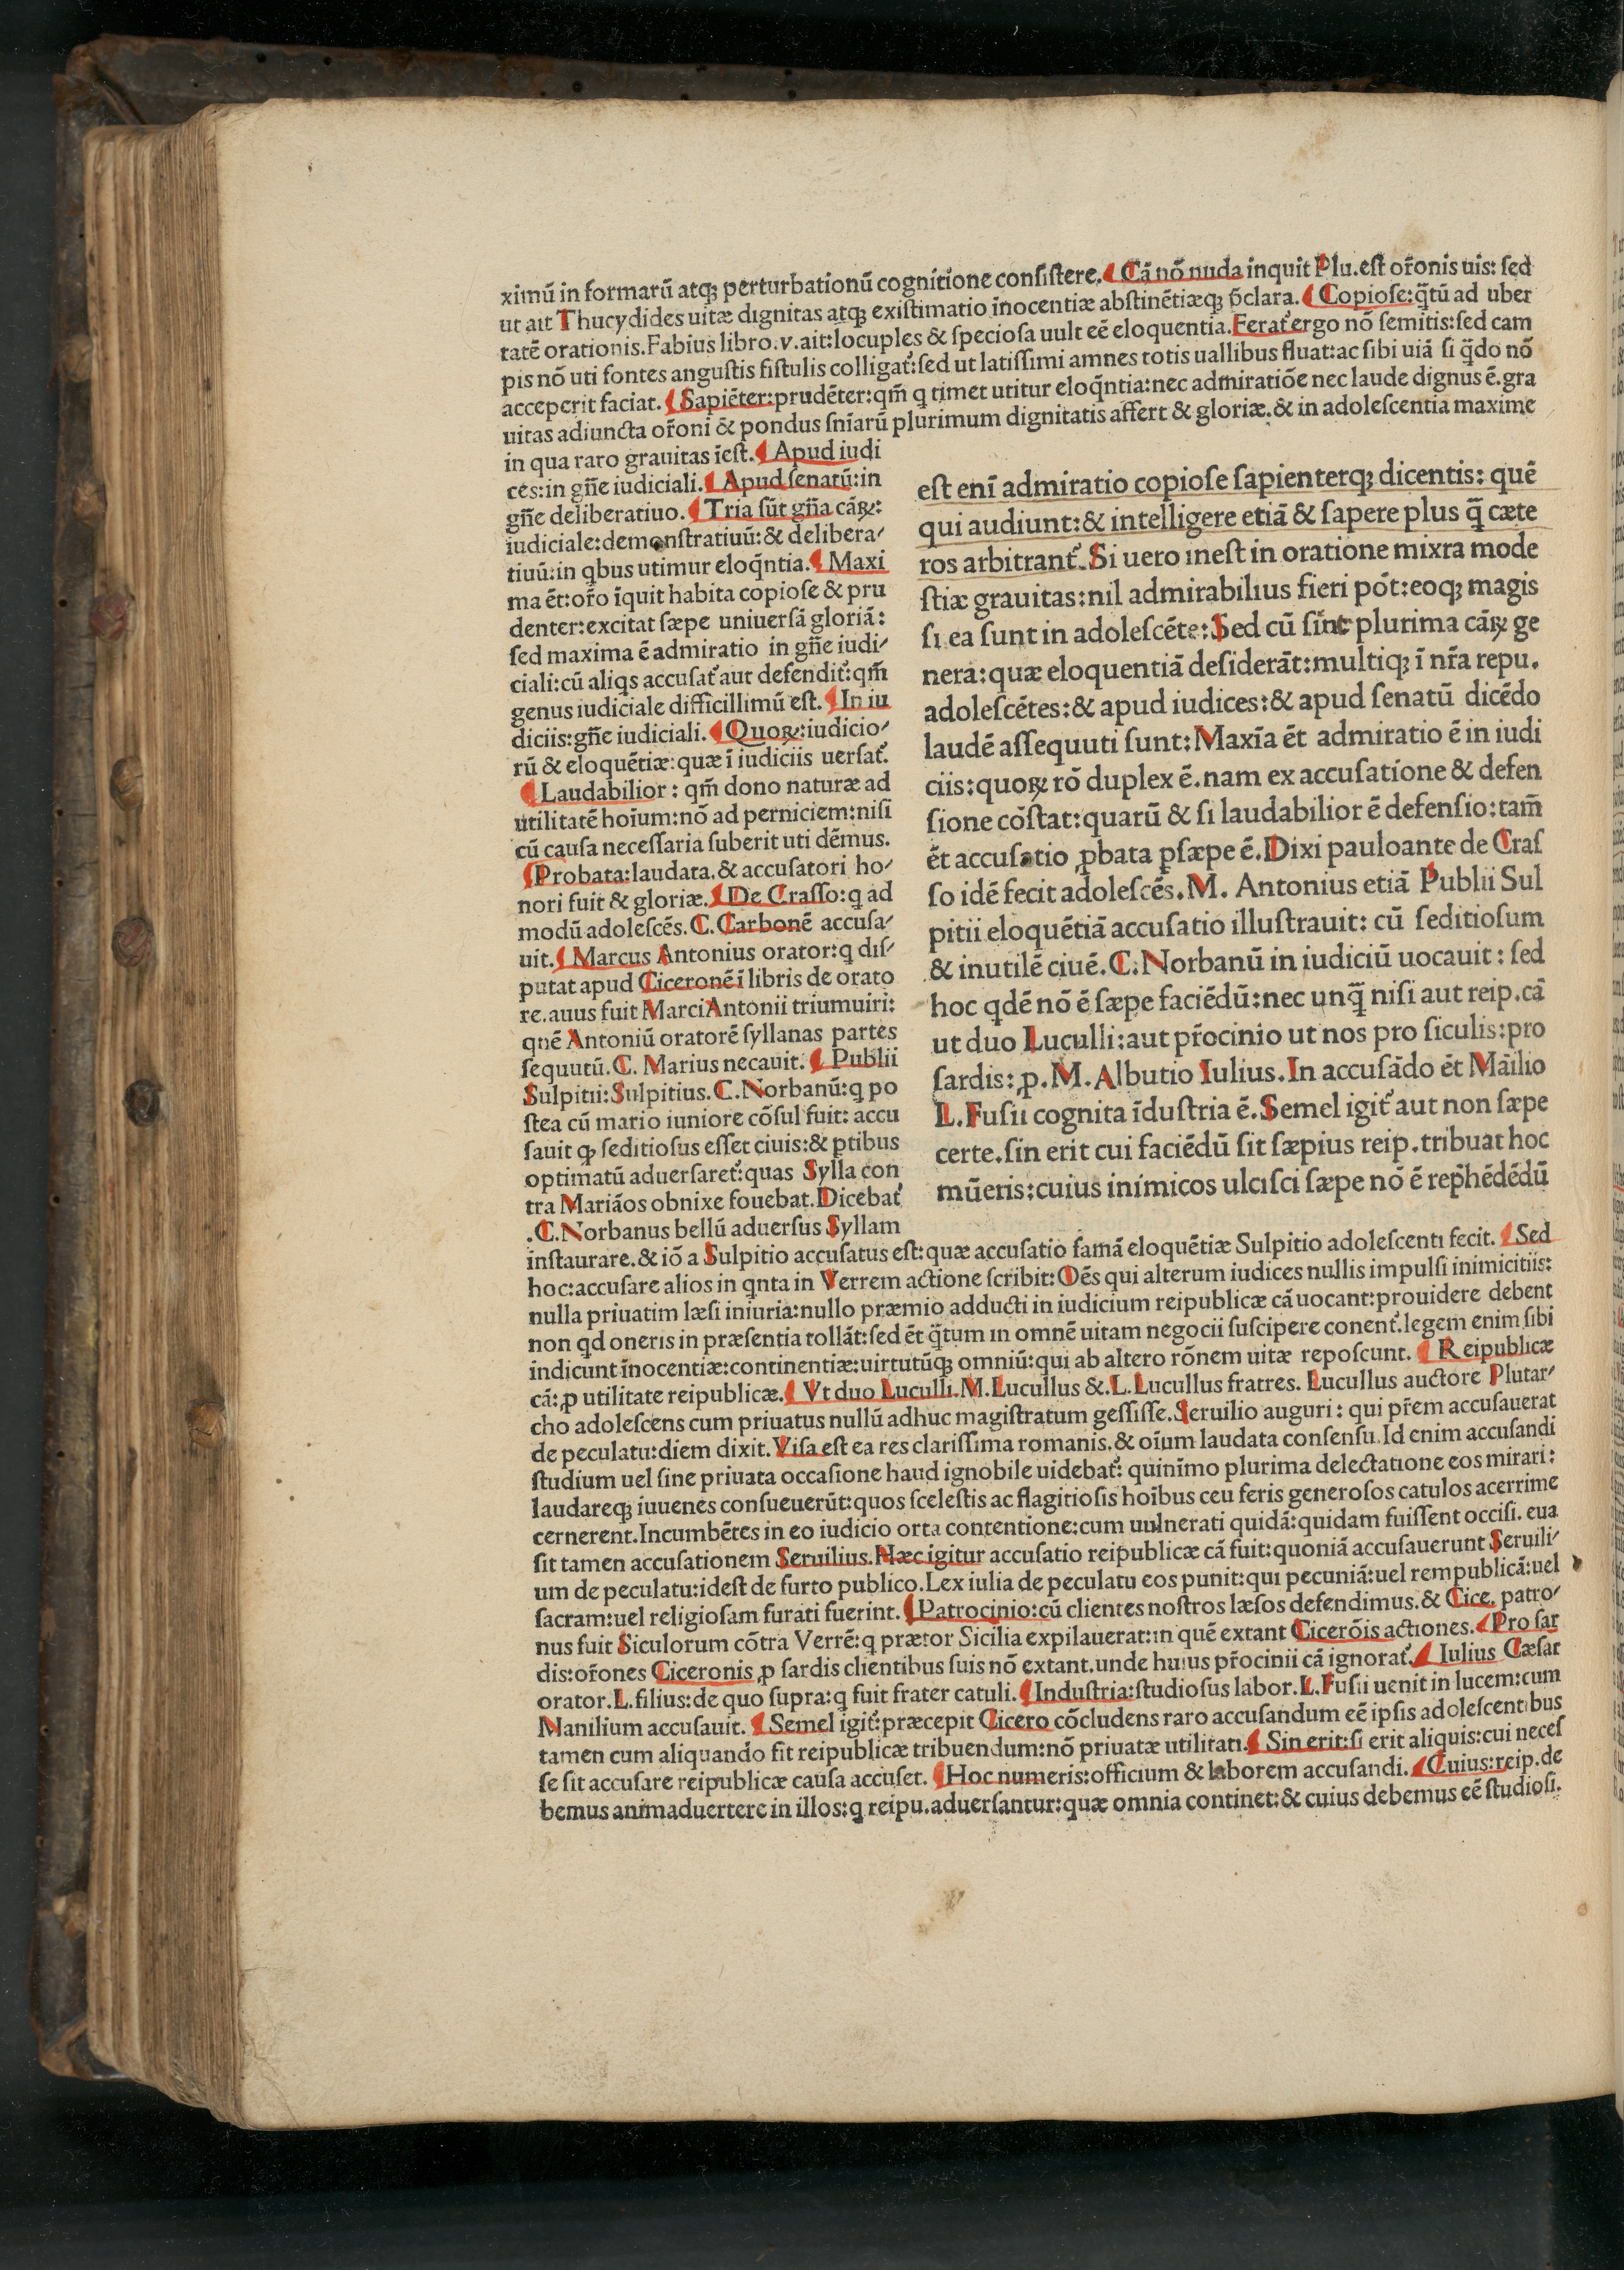 ximũ in formarũ atq; perturbationũ cognitione conſiſtere. ¶ Cã nõ nuda inquit Plu. eſt or̃onis uis: ſed
ut ait Thucydides uitæ dignitas atq; exiſtimatio ĩnocentiæ abſtinẽtiæq; p̃clara. ¶ Copioſe: q̃tũ ad uber
tatẽ orationis. Fabius libro. v. ait: locuples & ſpecioſa uult eẽ eloquentia. Ferat᷑ ergo nõ ſemitis: ſed cam
pis nõ uti fontes anguſtis fiſtulis colligat᷑: ſed ut latiſſimi amnes totis uallibus fluat: ac ſibi uiã ſi q̃do nõ
acceperit faciat. ¶ Sapiẽter: prudẽter: qm̃ q timet utitur eloq̃ntia: nec admiratiõe nec laude dignus ẽ. gra
uitas adiuncta or̃oni & pondus ſnĩarũ plurimum dignitatis affert & gloriæ. & in adoleſcentia maxime
in qua raro grauitas ĩeſt. ¶ Apud iudi
ces: in gñe iudiciali. ¶ Apud ſenatũ: in
gñe deliberatiuo. ¶ Tria ſũt gña cãꝝ:
iudiciale: demonſtratiuũ: & delibera⸗
tiuũ: in qbus utimur eloq̃ntia. ¶ Maxi
ma ẽt: or̃o ĩquit habita copioſe & pru
denter: excitat ſæpe uniuerſã gloriã:
ſed maxima ẽ admiratio in gñe iudi⸗
ciali: cũ aliqs accuſat᷑ aut defendit᷑: qm̃
genus iudiciale difficillimũ eſt. ¶ In iu
diciis: gñe iudiciali. ¶ Quoꝝ: iudicio⸗
rũ & eloquẽtiæ: quæ ĩ iudiciis uerſat᷑.
¶ Laudabilior: qm̃ dono naturæ ad
utilitatẽ hoĩum: nõ ad perniciem: niſi
cũ cauſa neceſſaria ſuberit uti dẽmus.
¶ Probata: laudata. & accuſatori ho⸗
nori fuit & gloriæ. ¶ De Craſſo: q ad
modũ adoleſcẽs. C. Carbonẽ accuſa⸗
uit. ¶ Marcus Antonius orator: q diſ⸗
putat apud Ciceronẽ ĩ libris de orato
re. auus fuit Marci Antonii triumuiri:
quẽ Antoniũ oratorẽ ſyllanas partes
ſequutũ. C. Marius necauit. ¶ Publii
Sulpitii: Sulpitius. C. Norbanũ: q po
ſtea cũ mario iuniore cõſul fuit: accu
ſauit ꝙ ſeditioſus eſſet ciuis: & ꝑtibus
optimatũ aduerſaret᷑: quas Sylla con
tra Mariãos obnixe fouebat. Dicebat᷑
.C. Norbanus bellũ aduerſus Syllam
eſt enĩ admiratio copioſe ſapienterq; dicentis: quẽ
qui audiunt: & intelligere etiã & ſapere plus q̃ cæte
ros arbitrant᷑. Si uero ineſt in oratione mixra mode
ſtiæ grauitas: nil admirabilius fieri põt: eoq; magis
ſi ea ſunt in adoleſcẽte: Sed cũ ſint plurima cãꝝ ge
nera: quæ eloquentiã deſiderãt: multiq; ĩ nr̃a repu.
adoleſcẽtes: & apud iudices: & apud ſenatũ dicẽdo
laudẽ aſſequuti ſunt: Maxĩa ẽt admiratio ẽ in iudi
ciis: quoꝝ rõ duplex ẽ. nam ex accuſatione & defen
ſione cõſtat: quarũ & ſi laudabilior ẽ defenſio: tam̃
ẽt accuſatio ꝓbata pſæpe ẽ. Dixi pauloante de Craſ
ſo idẽ fecit adoleſcẽs. M. Antonius etiã Publii Sul
pitii eloquẽtiã accuſatio illuſtrauit: cũ ſeditioſum
& inutilẽ ciuẽ. C. Norbanũ in iudiciũ uocauit: ſed
hoc qdẽ nõ ẽ ſæpe faciẽdũ: nec unq̃ niſi aut reip. cã
ut duo Luculli: aut pr̃ocinio ut nos pro ſiculis: pro
ſardis: ꝓ. M. Albutio Iulius. In accuſãdo ẽt Mãilio
L. Fuſii cognita ĩduſtria ẽ. Semel igit᷑ aut non ſæpe
certe. ſin erit cui faciẽdũ ſit ſæpius reip. tribuat hoc
mũeris: cuius inimicos ulciſci ſæpe nõ ẽ rep̃hẽdẽdũ
inſtaurare. & iõ a Sulpitio accuſatus eſt: quæ accuſatio famã eloquẽtiæ Sulpitio adoleſcenti fecit. ¶ Sed
hoc: accuſare alios in qnta in Verrem actione ſcribit: Oẽs qui alterum iudices nullis impulſi inimicitiis:
nulla priuatim læſi iniuria: nullo præmio adducti in iudicium reipublicæ cã uocant: prouidere debent
non qd oneris in præſentia tollãt: ſed ẽt q̃tum in omnẽ uitam negocii ſuſcipere conent᷑. legem enim ſibi
indicunt ĩnocentiæ: continentiæ: uirtutũq; omniũ: qui ab altero rõnem uitæ repoſcunt. ¶ Reipublicæ
cã: ꝓ utilitate reipublicæ. ¶ Vt duo Luculli. M. Lucullus &. L. Lucullus fratres. Lucullus auctore Plutar⸗
cho adoleſcens cum priuatus nullũ adhuc magiſtratum geſſiſſe. Seruilio auguri: qui pr̃em accuſauerat
de peculatu: diem dixit. Viſa eſt ea res clariſſima romanis. & oĩum laudata conſenſu. Id enim accuſandi
ſtudium uel ſine priuata occaſione haud ignobile uidebat᷑: quinĩmo plurima delectatione eos mirari:
laudareq; iuuenes conſueuerũt: quos ſceleſtis ac flagitioſis hoĩbus ceu feris generoſos catulos acerrime
cernerent. Incumbẽtes in eo iudicio orta contentione: cum uulnerati quidã: quidam fuiſſent occiſi. eua
ſit tamen accuſationem Seruilius. Hæc igitur accuſatio reipublicæ cã fuit: quoniã accuſauerunt Seruili⸗
um de peculatu: ideſt de furto publico. Lex iulia de peculatu eos punit: qui pecuniã: uel rempublicã: uel
ſacram: uel religioſam furati fuerint. ¶ Patrocinio: cũ clientes noſtros læſos defendimus. & Cice. patro⸗
nus fuit Siculorum cõtra Verrẽ: q prætor Sicilia expilauerat: in quẽ extant Cicerõis actiones. ¶ Pro ſar
dis: or̃ones Ciceronis ꝓ ſardis clientibus ſuis nõ extant. unde huius pr̃ocinii cã ignorat᷑. ¶ Iulius Cæſar
orator. L. filius: de quo ſupra: q fuit frater catuli. ¶ Induſtria: ſtudioſus labor. L. Fuſii uenit in lucem: cum
Manilium accuſauit. ¶ Semel igit᷑: præcepit Cicero cõcludens raro accuſandum eẽ ipſis adoleſcentibus
tamen cum aliquando fit reipublicæ tribuendum: nõ priuatæ utilitati. ¶ Sin erit: ſi erit aliquis: cui neceſ
ſe ſit accuſare reipublicæ cauſa accuſet. ¶ Hoc numeris: officium & laborem accuſandi. ¶ Cuius: reip. de
bemus animaduertere in illos: q reipu. aduerſantur: quæ omnia continet: & cuius debemus eẽ ſtudioſi.